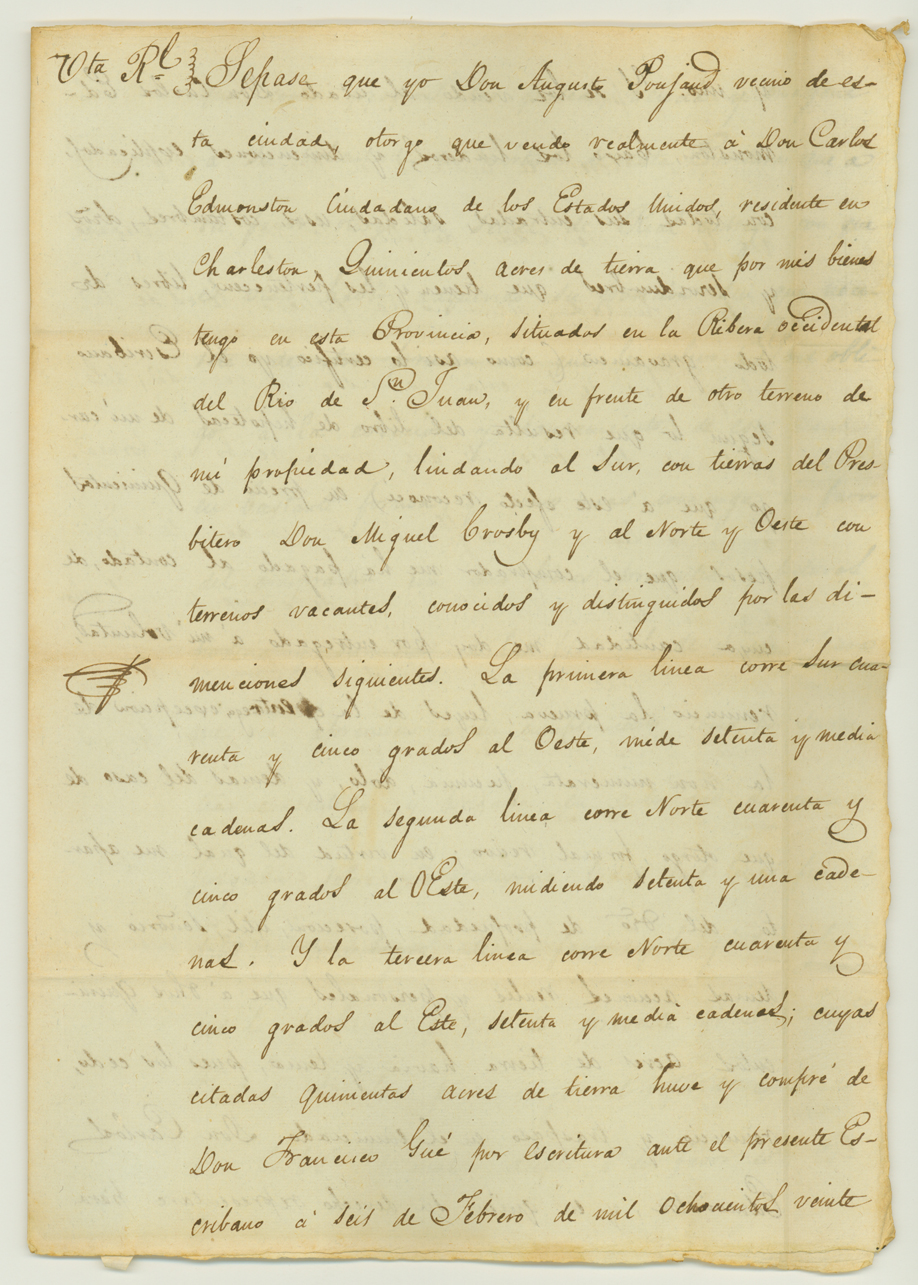 Vta Rl Sepase que yo Don August Poujaud vecino de es-
ta ciudad, otorgo que vendo realmente à Don Carlos
Edmonston Ciudadano de los Estados Unidos, residente en
Charleston Quinientos acres de tierra que por mis bienes
tengo en esta Provincia, situados en la Ribera occidental
del Rio de Sn. Juan, y en frente de otro terreno de
mi propiedad, lindando al Sur, con tierras del Pres-
bitero Don Miguel Crosby y al Norte y Oeste con
terrenos vacantes, conocidos y distinguidos por las di-
menciones siguientes. La primera linea corre Sur cua-
renta y cinco grados al Oeste, mide setenta y media
cadenas. La segunda linea corre Norte cuarenta y
cinco grados al OEste, midiendo setenta y una cade-
nas. Y la tercera linea corre Norte cuarenta y
cinco grados al Este, setenta y media cadenas; cuyas
citadas quinientas acres de tierra huve y compré de
Don Francisco Gué por escritura ante el presente Es-
cribano á seis de Febrero de mil ochocientos veinte